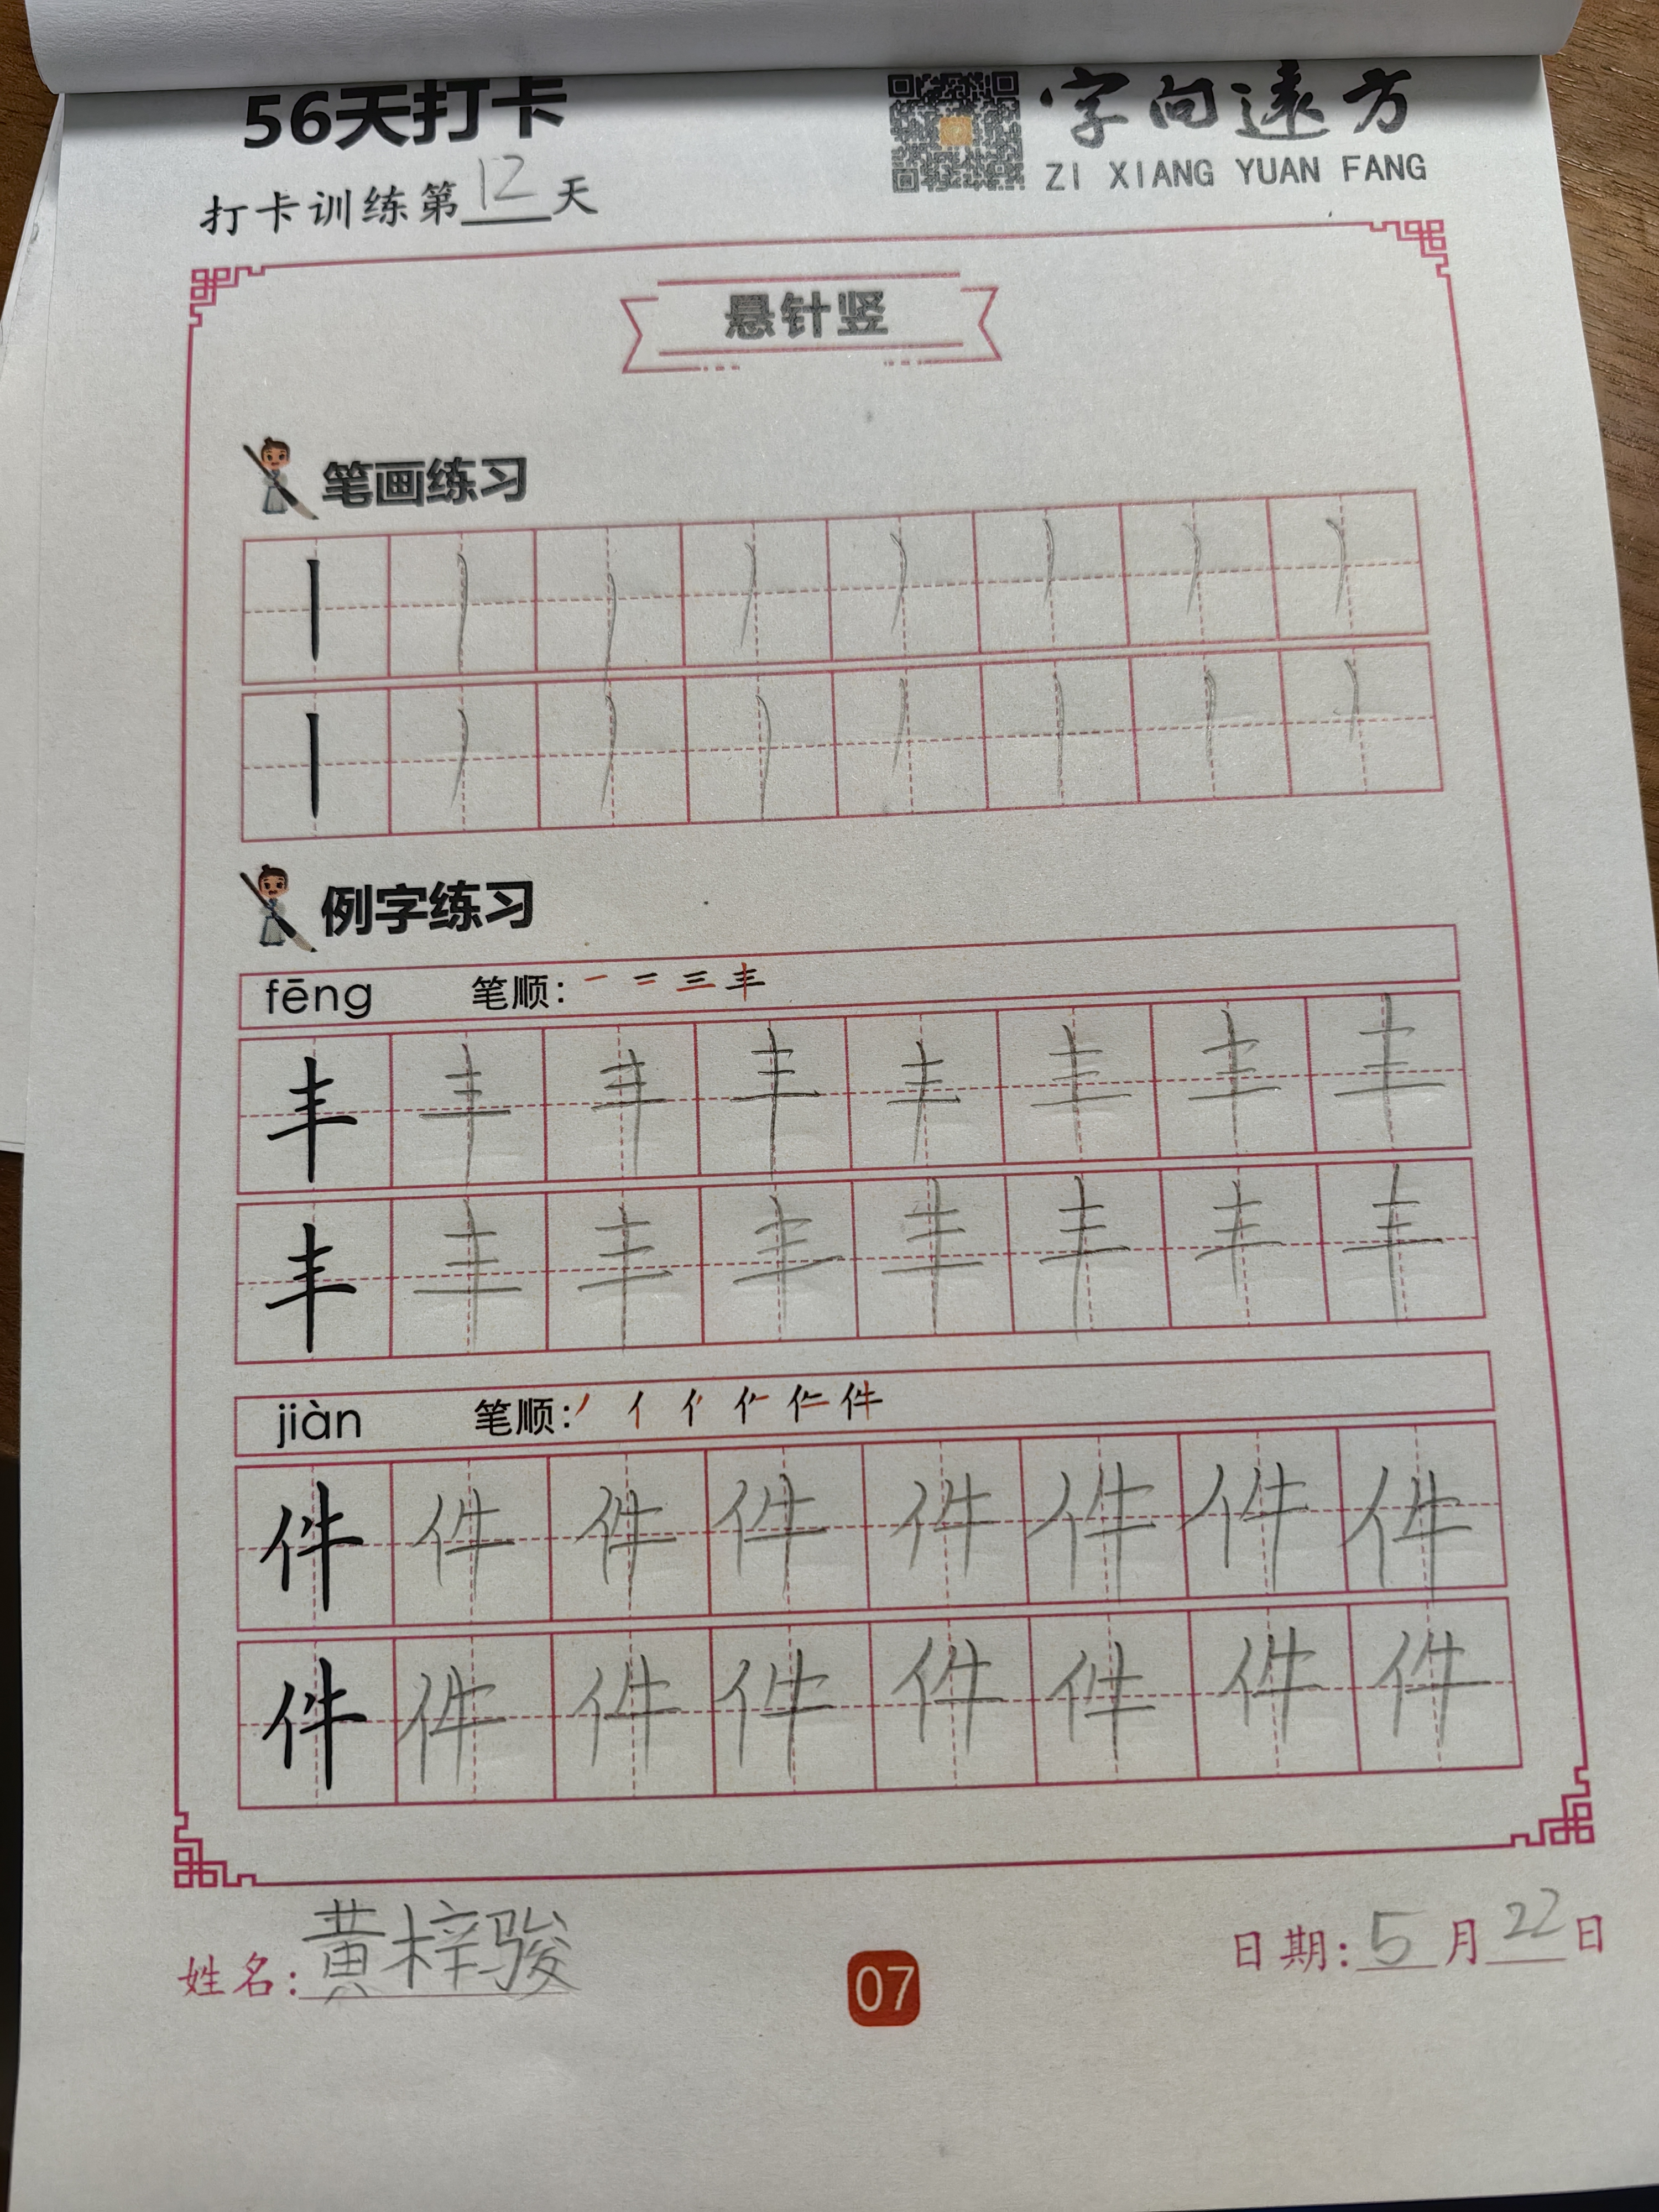 56天打卡
字向远方
ZI XIANG YUAN FANG
打卡训练第12天
悬针竖
笔画练习
丨 丨 丨 丨 丨 丨 丨 丨
丨 丨 丨 丨 丨 丨 丨 丨
例字练习
fēng 笔顺: 一 二 三 丰
丰 丰 丰 丰 丰 丰 丰 丰
丰 丰 丰 丰 丰 丰 丰 丰
jiàn 笔顺: 丿 亻 件
件 件 件 件 件 件 件 件
件 件 件 件 件 件 件 件
姓名: 黄梓骏
07
日期: 5月22日